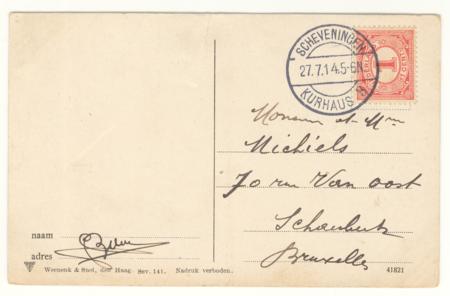 SCHEVENINGEN
27.7.14.5-6N
KURHAUS
NEDERLAND
1
CENT
Monsieur et Mme
Michiels
70 rue Van Oost
Schaerbeek
Bruxelles
naam
adres
Weenenk & Snel, den Haag. Ser. 141. Nadruk verboden.
41821